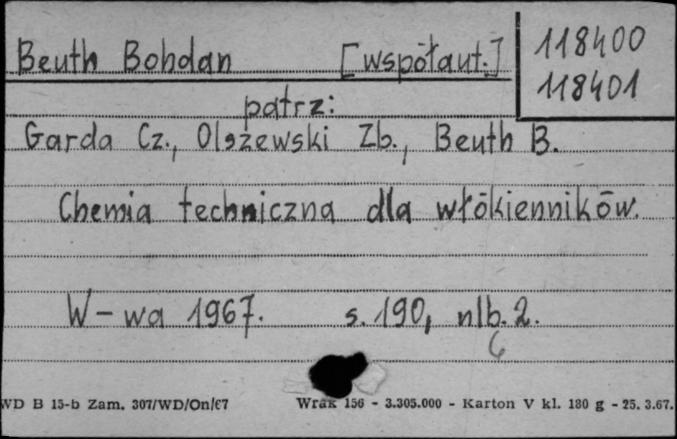 Beuth Bohdan [współaut.] 118400
118401
patrz:
Garda Cz., Olszewski Zb., Beuth B.
Chemia techniczna dla włókienników.
W-wa 1967. s. 190, nlb. 2.
6
WD B 15-b Zam. 307/WD/On/67 Wrak 156 - 3.305.000 - Karton V kl. 180 g - 25. 3.67.